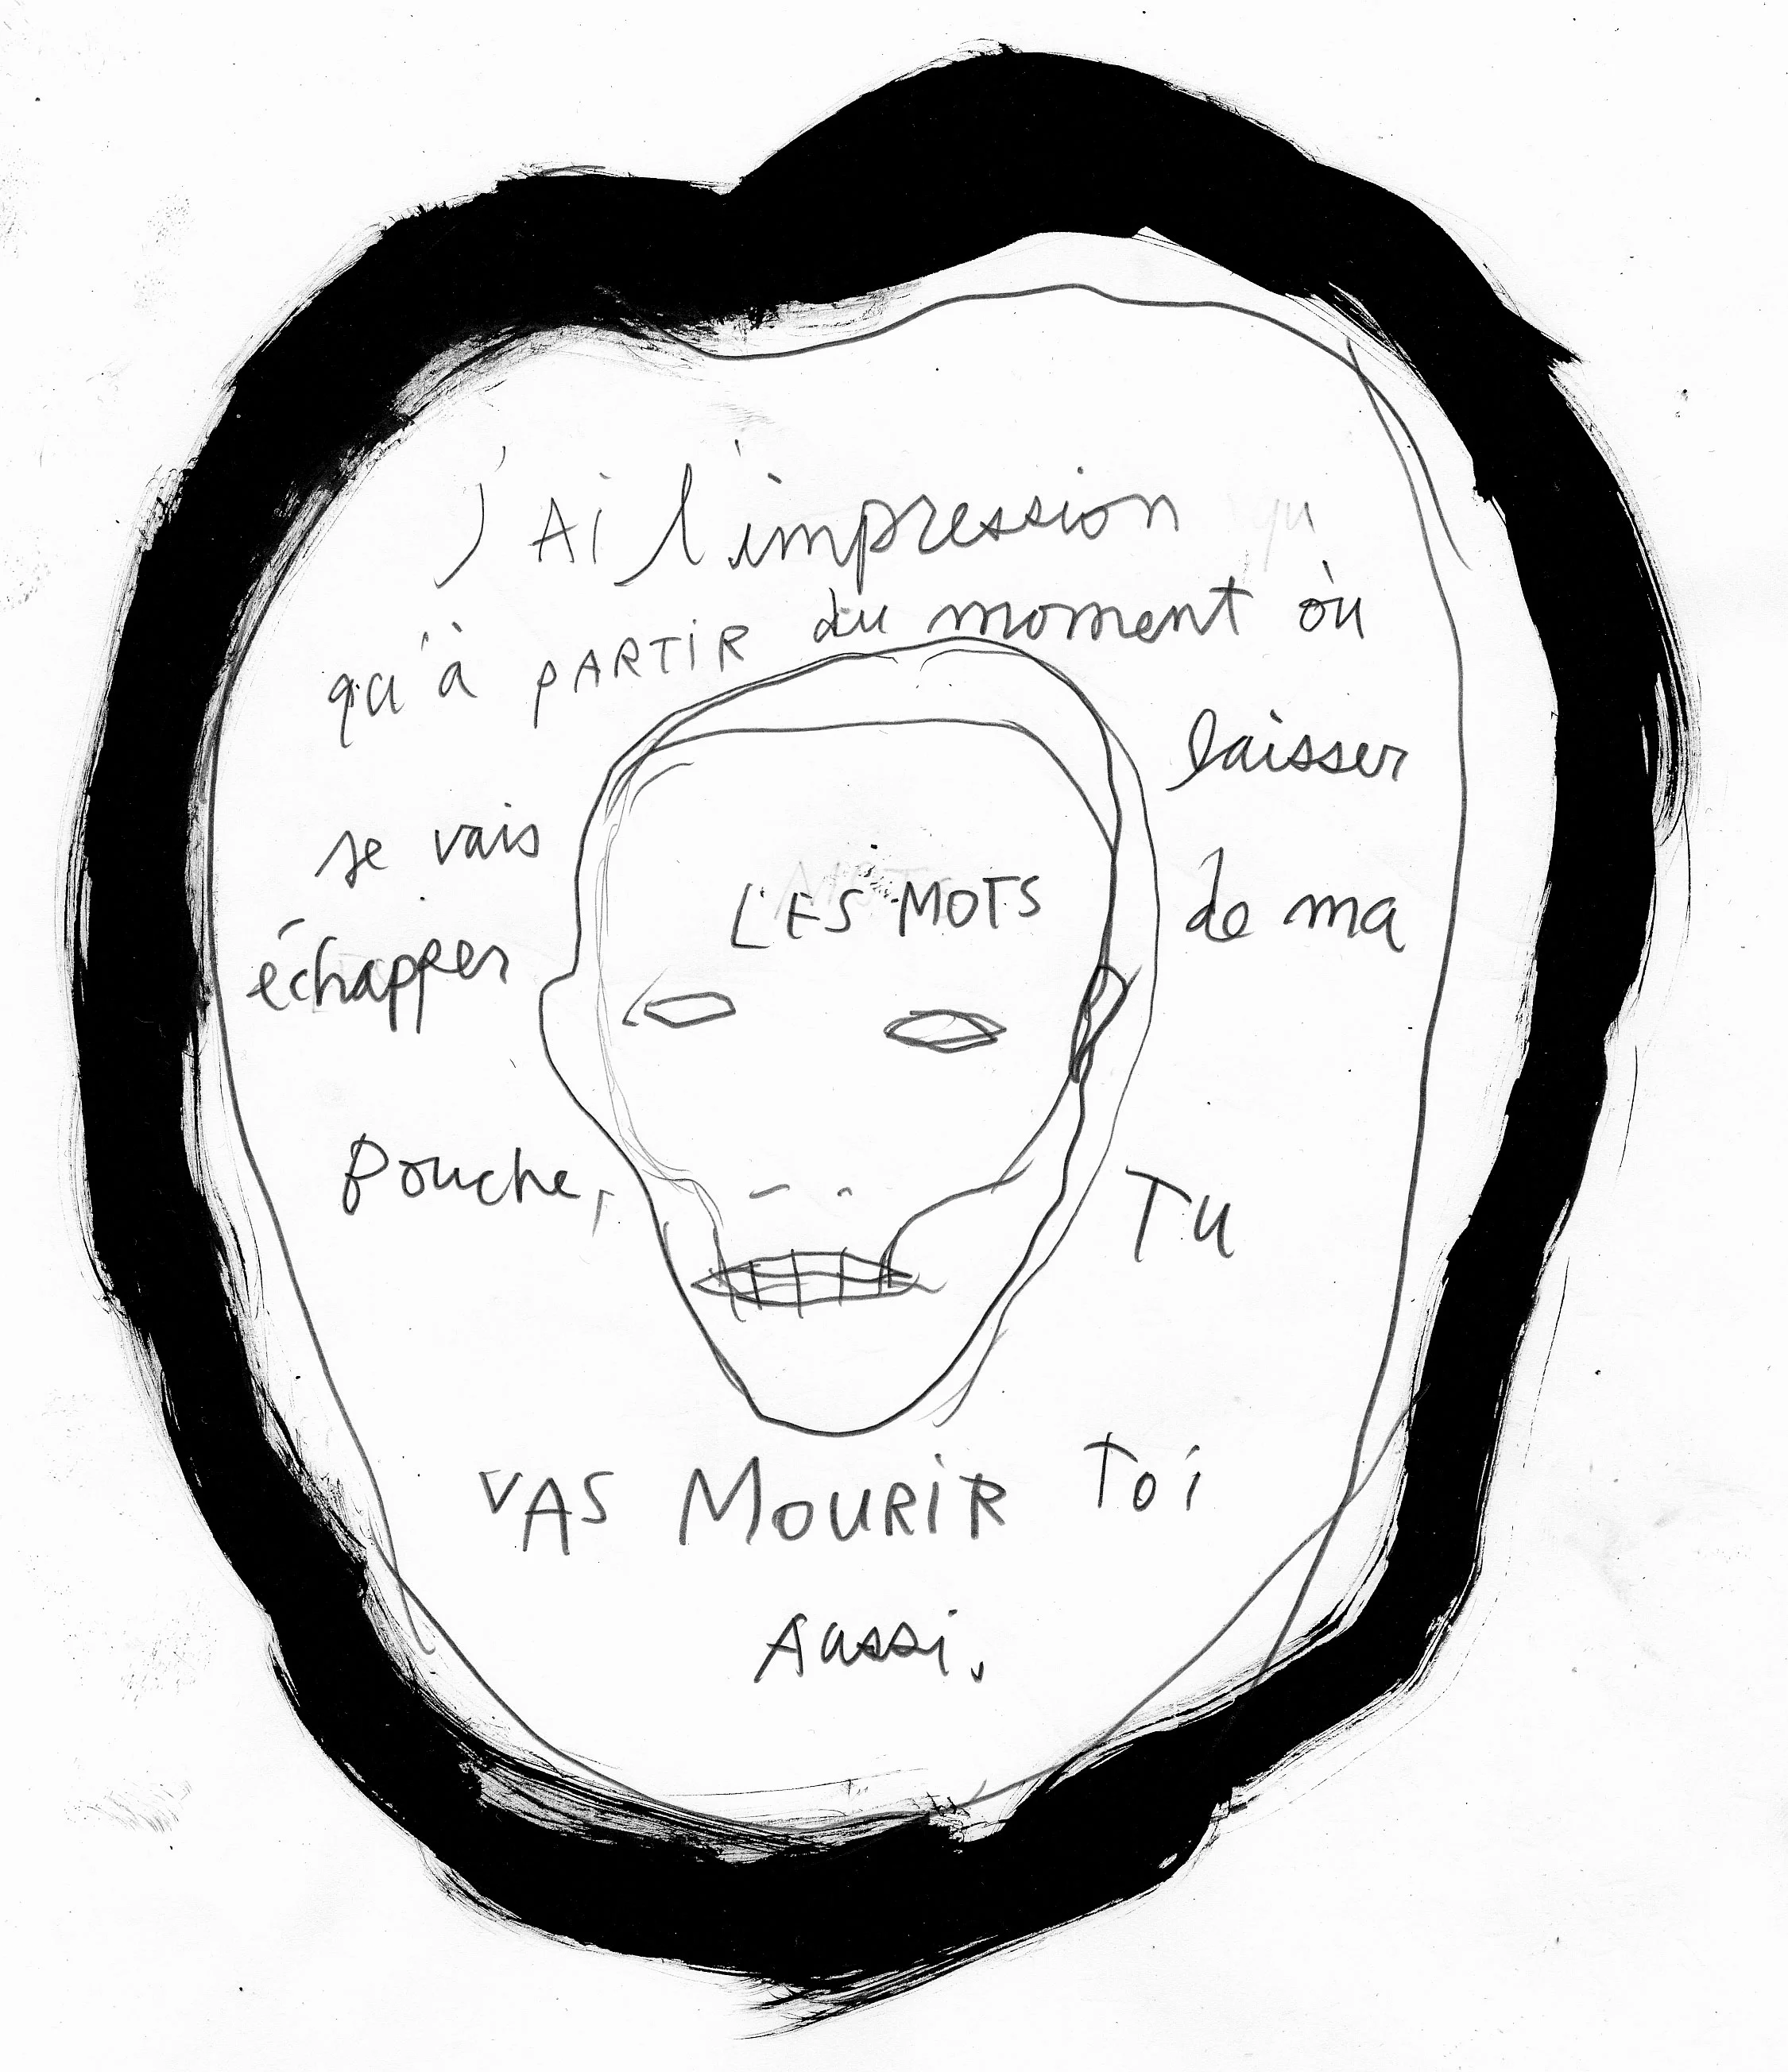 J'Ai l'impression
qu'à PARTiR du moment où
je vais laisser
LES MOTS
échapper de ma
bouche, TU
VAS MOURiR Toi
Aussi.